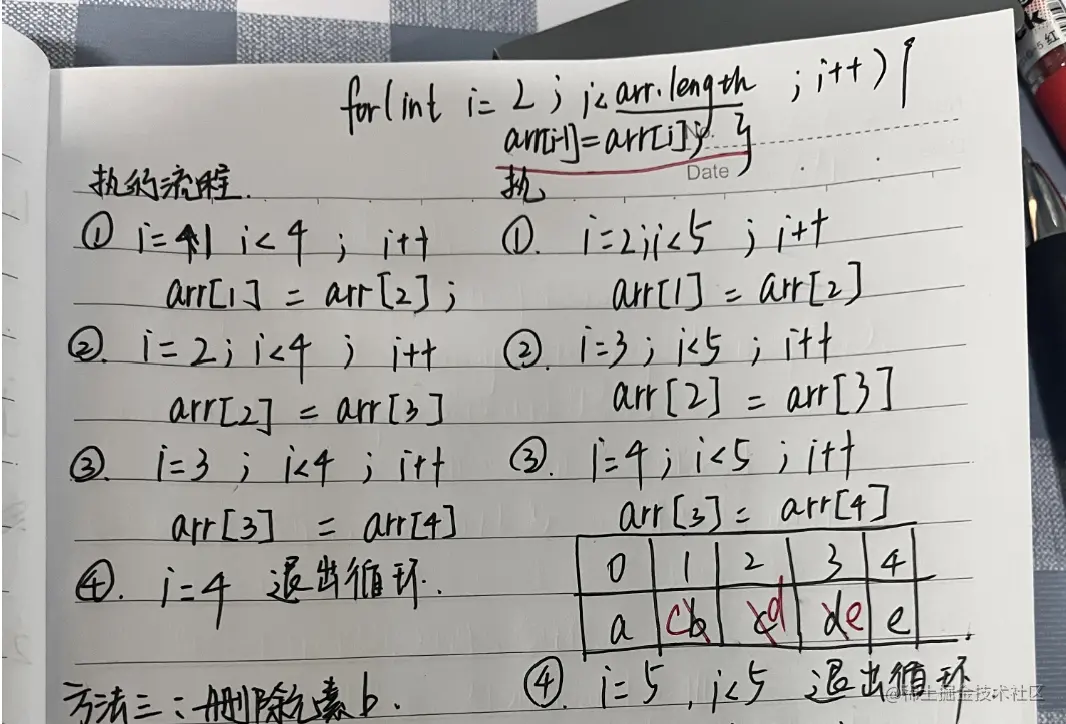 for(int i= 2; i<arr.length ; i++){
arr[i-1]=arr[i]; }
Date
执行流程. 执
① i=1 i<4 ; i++
arr[1] = arr[2];
②. i=2; i<4 ; i++
arr[2] = arr[3]
③. i=3 ; i<4 ; i++
arr[3] = arr[4]
④. i=4 退出循环.
方法三:删除元素b.
①. i=2;i<5 ; i++
arr[1] = arr[2]
②. i=3; i<5 ; i++
arr[2] = arr[3]
③. i=4; i<5 ; i++
arr[3] = arr[4]
0 1 2 3 4
a cb cd de e
④ i=5 , i<5 退出循环
@稀土掘金技术社区